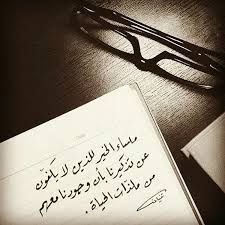 مساء الخير للذين لا يكفون
عن تذكيرنا بأن وجودنا معهم
من ملذات الحياة .